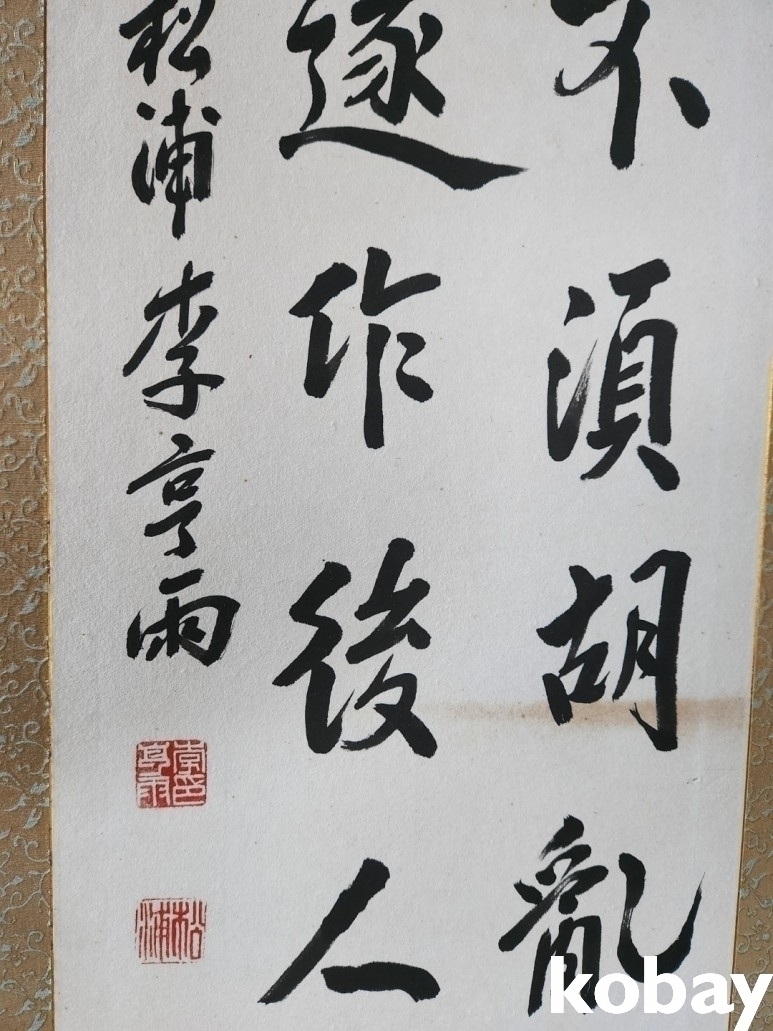 不須胡亂
遂作後人
松浦李亨雨
李印
亨雨
松浦
kobay